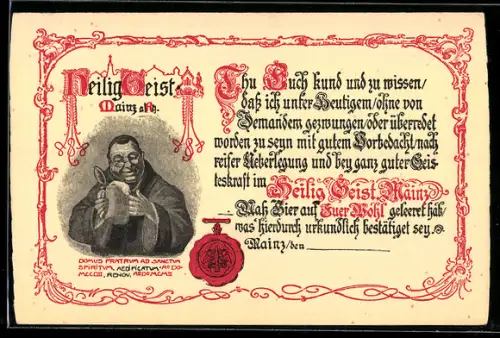 Heilig Geist
Mainz a. Rh.
DOMUS FRATRUM AD SANCTUM
SPIRITUM, AEDIFICATUM
RENOV.
Thu Euch kund und zu wissen/
daß ich unter Heutigem/ohne von
Jemandem gezwungen/oder überredet
worden zu seyn mit gutem Vorbedacht/nach
reifer Ueberlegung und bey ganz guter Geis-
teskraft im Heilig Geist, Mainz
Maß Bier auf Euer Wohl geleeret hab/
was hierdurch urkundlich bestätiget sey.
Mainz/den